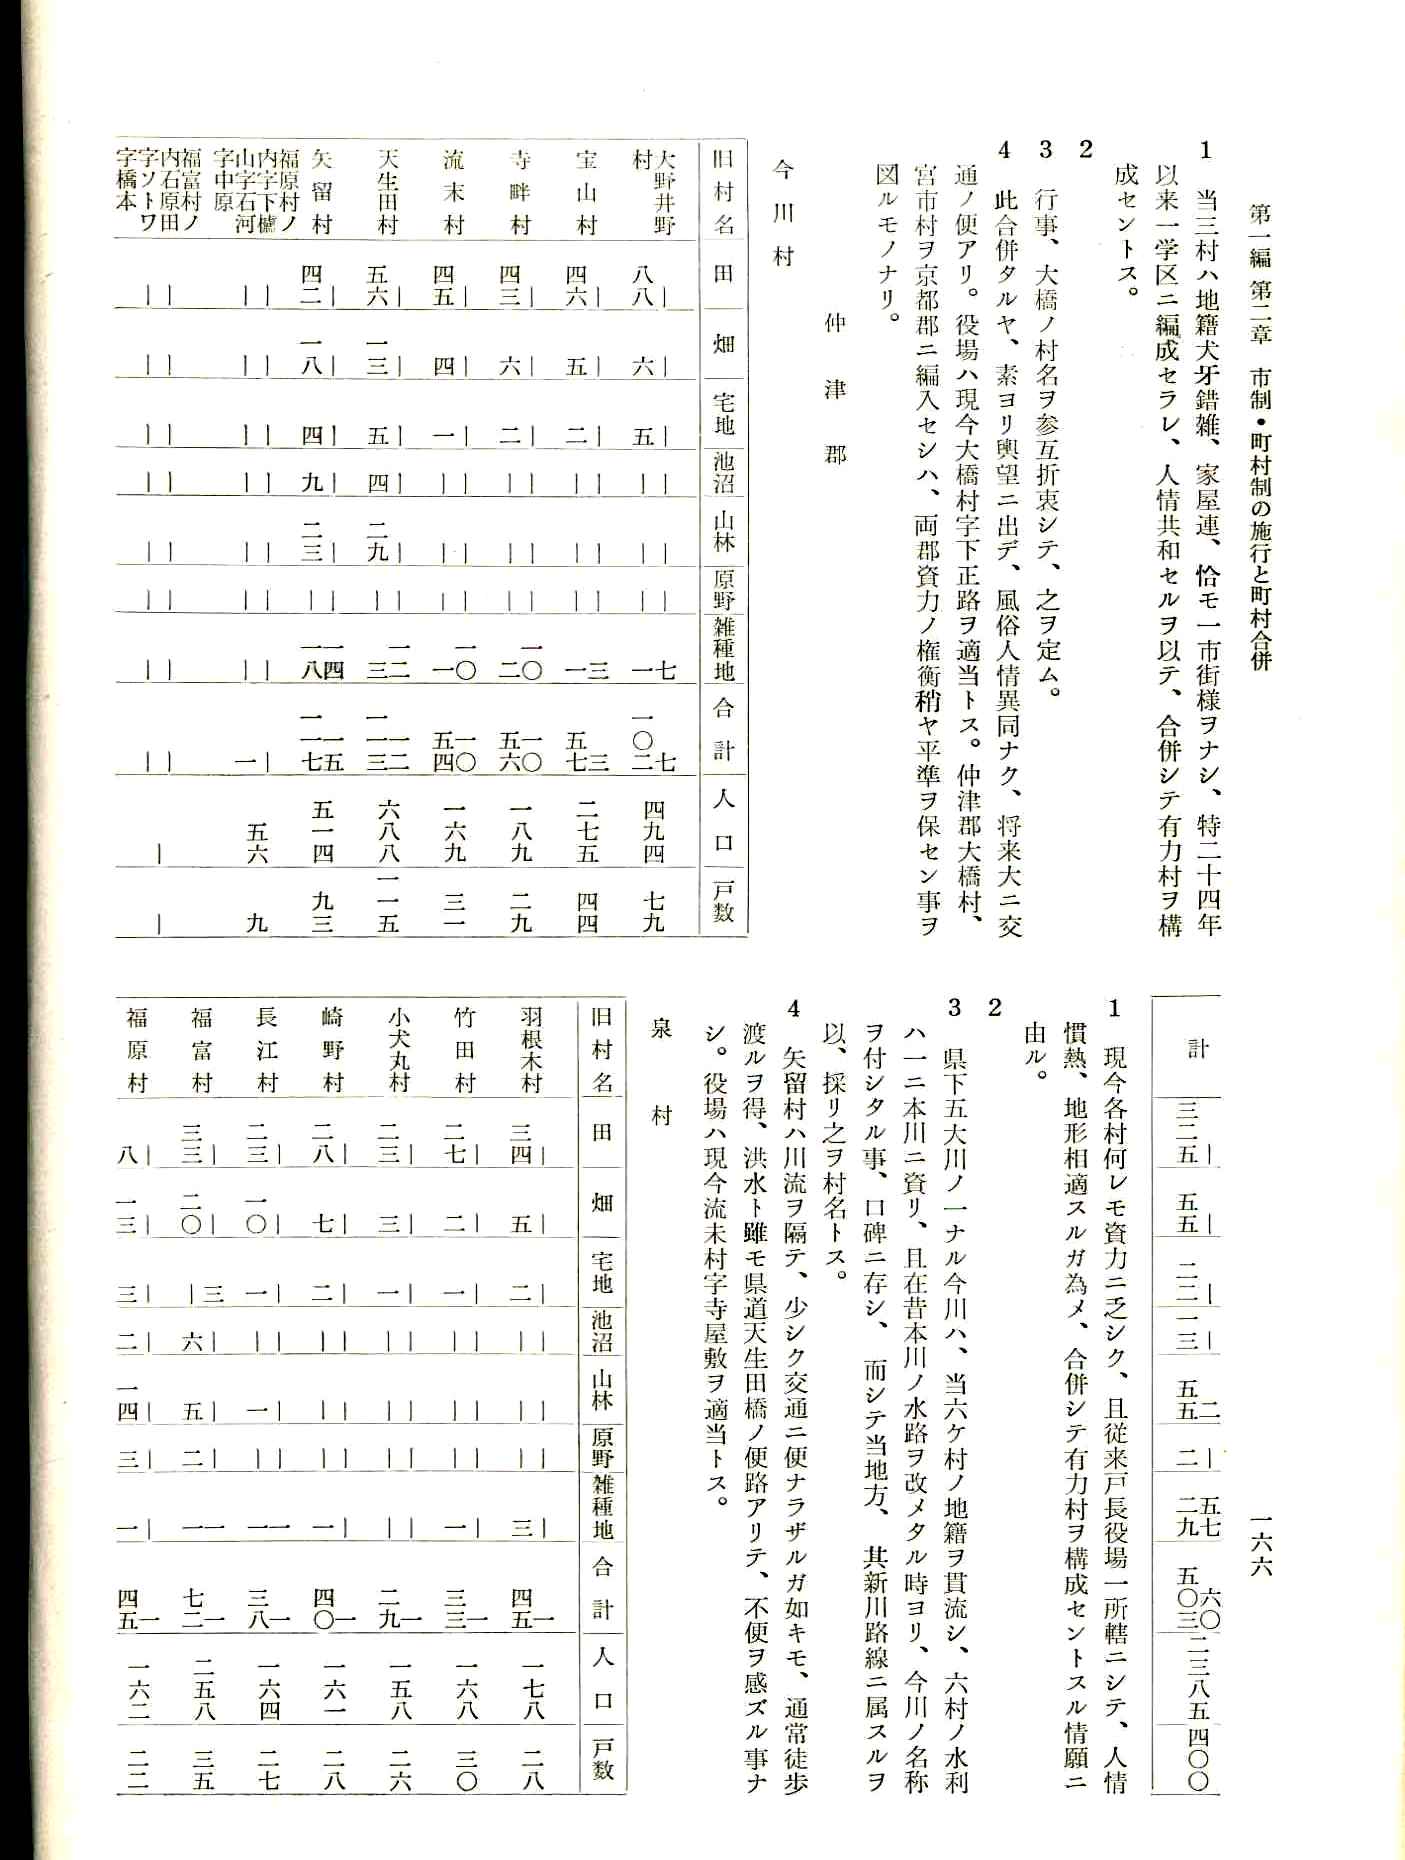 第一編 第二章 市制・町村制の施行と町村合併
一六六
1 当三村ハ地籍犬牙錯雑、家屋連、恰モ一市街様ヲナシ、特二十四年
以来一学区ニ編成セラレ、人情共和セルヲ以テ、合併シテ有力村ヲ構
成セントス。
2
3 行事、大橋ノ村名ヲ参互折衷シテ、之ヲ定ム。
4 此合併タルヤ、素ヨリ輿望ニ出デ、風俗人情異同ナク、将来大ニ交
通ノ便アリ。役場ハ現今大橋村字下正路ヲ適当トス。仲津郡大橋村、
宮市村ヲ京都郡ニ編入セシハ、両郡資力ノ権衡稍ヤ平準ヲ保セン事ヲ
図ルモノナリ。
仲津郡
今川村
旧村名 田 畑 宅地 池沼 山林 原野 雑種地 合計 人口 戸数
大野井野村 | 八八 | 六 | 五 | | | | | | 七 一 七 一〇二 四九四 七九
宝山村 | 四六 | 五 | 二 | | | | | | 三 一 三 五七 二七五 四四
寺畔村 | 四三 | 六 | 二 | | | | | | 一〇 二 一〇 五六 一八九 二九
流末村 | 四五 | 四 | 一 | | | | | | 一〇 一 一〇 五四 一六九 三一
天生田村 | 五六 | 一三 | 五 | 四 | 二九 | | 一二 三 一二 一一三 六八八 一一五
矢留村 | 四二 | 一八 | 四 | 九 | 二三 | | 一四 一八 一五 一一七 五一四 九三
福原村ノ
内字下櫨
山字石河
字中原 | | | | | | | | | | | | | | | 一 五六 九
福富村ノ
内石原田
字ソトワ
字橋本 | | | | | | | | | | | | | | | | | |
計 | 三二五 | 五五 | 二二 | 一三 二 五五 | 二 五七 二九 六〇 五〇三 二三八五 四〇〇
1 現今各村何レモ資力ニ乏シク、且従来戸長役場一所轄ニシテ、人情
慣熱、地形相適スルガ為メ、合併シテ有力村ヲ構成セントスル情願ニ
由ル。
2
3 県下五大川ノ一ナル今川ハ、当六ケ村ノ地籍ヲ貫流シ、六村ノ水利
ハ一ニ本川ニ資リ、且在昔本川ノ水路ヲ改メタル時ヨリ、今川ノ名称
ヲ付シタル事、口碑ニ存シ、而シテ当地方、其新川路線ニ属スルヲ
以、採リ之ヲ村名トス。
4 矢留村ハ川流ヲ隔テ、少シク交通ニ便ナラザルガ如キモ、通常徒歩
渡ルヲ得、洪水ト雖モ県道天生田橋ノ便路アリテ、不便ヲ感ズル事ナ
シ。役場ハ現今流末村字寺屋敷ヲ適当トス。
泉村
旧村名 田 畑 宅地 池沼 山林 原野 雑種地 合計 人口 戸数
羽根木村 | 三四 | 五 | 二 | | | | | | | 三 一 四五 一七八 二八
竹田村 | 二七 | 二 | 一 | | | | | | | 一 一 三三 一六八 三〇
小犬丸村 | 二三 | 三 | 一 | | | | | | | | 一 二九 一五八 二六
崎野村 | 二八 | 七 | 二 | | | | | | | 一 一 四〇 一六一 二八
長江村 | 二三 | 一〇 | 一 | | | 一 | | 一 一 一 三八 一六四 二七
福富村 | 三三 | 二〇 三 | | 六 | 五 | 二 一 一 一 七二 二五八 三五
福原村 | 八 | 一三 | 三 | 二 | 一四 | 三 | 一 一 四五 一六二 二二